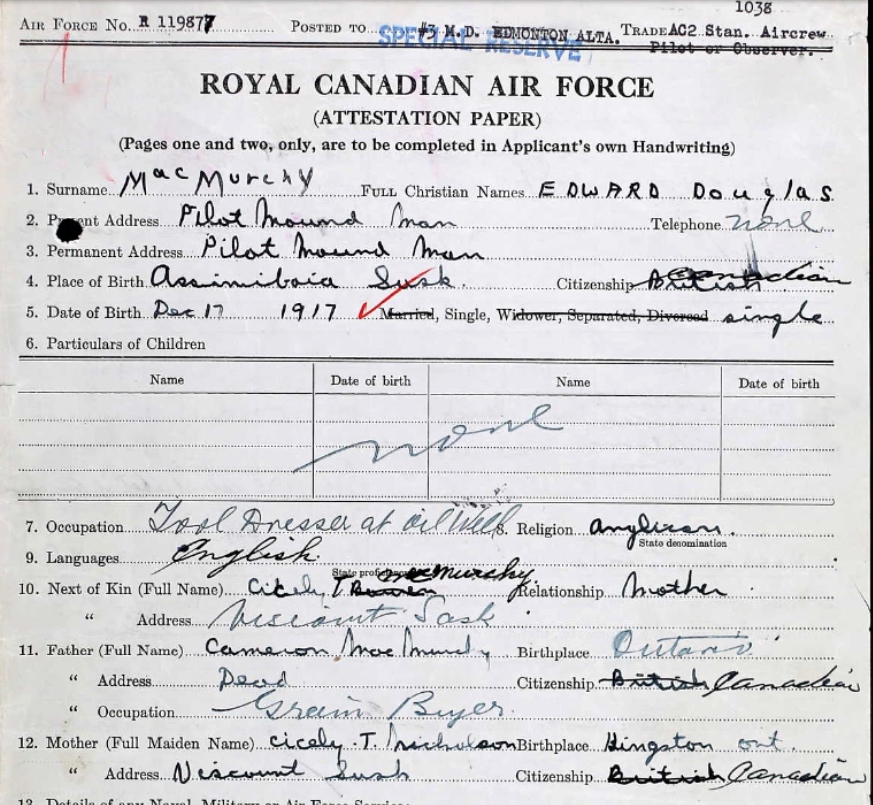 1038
AIR FORCE NO. R 119877 POSTED TO #3 M.D. EDMONTON ALTA. TRADE AC2 Stan. Aircrew
SPECIAL RESERVE Pilot or Observer.
ROYAL CANADIAN AIR FORCE
(ATTESTATION PAPER)
(Pages one and two, only, are to be completed in Applicant's own Handwriting)
1. Surname MacMurchy FULL Christian Names EDWARD Douglas
2. Present Address Pilot Mound Man Telephone none
3. Permanent Address Pilot Mound Man
4. Place of Birth Assiniboia Sask. Citizenship British Canadian
5. Date of Birth Dec 17 1917 Married, Single, Widower, Separated, Divorced single
6. Particulars of Children
Name Date of birth Name Date of birth
none
7. Occupation Tool Dresser at oil Well 8. Religion Anglican
State denomination
9. Languages English
MacMurchy
10. Next of Kin (Full Name) Cicely T Relationship Mother
" Address Viscount Sask
11. Father (Full Name) Cameron MacMurchy Birthplace Ontario
" Address Dead Citizenship British Canadian
" Occupation Grain Buyer
12. Mother (Full Maiden Name) Cicely. T. Nicholson Birthplace Kingston ont.
" Address Viscount Sask Citizenship British Canadian
13. Details of any Naval, Military or Air Force Service